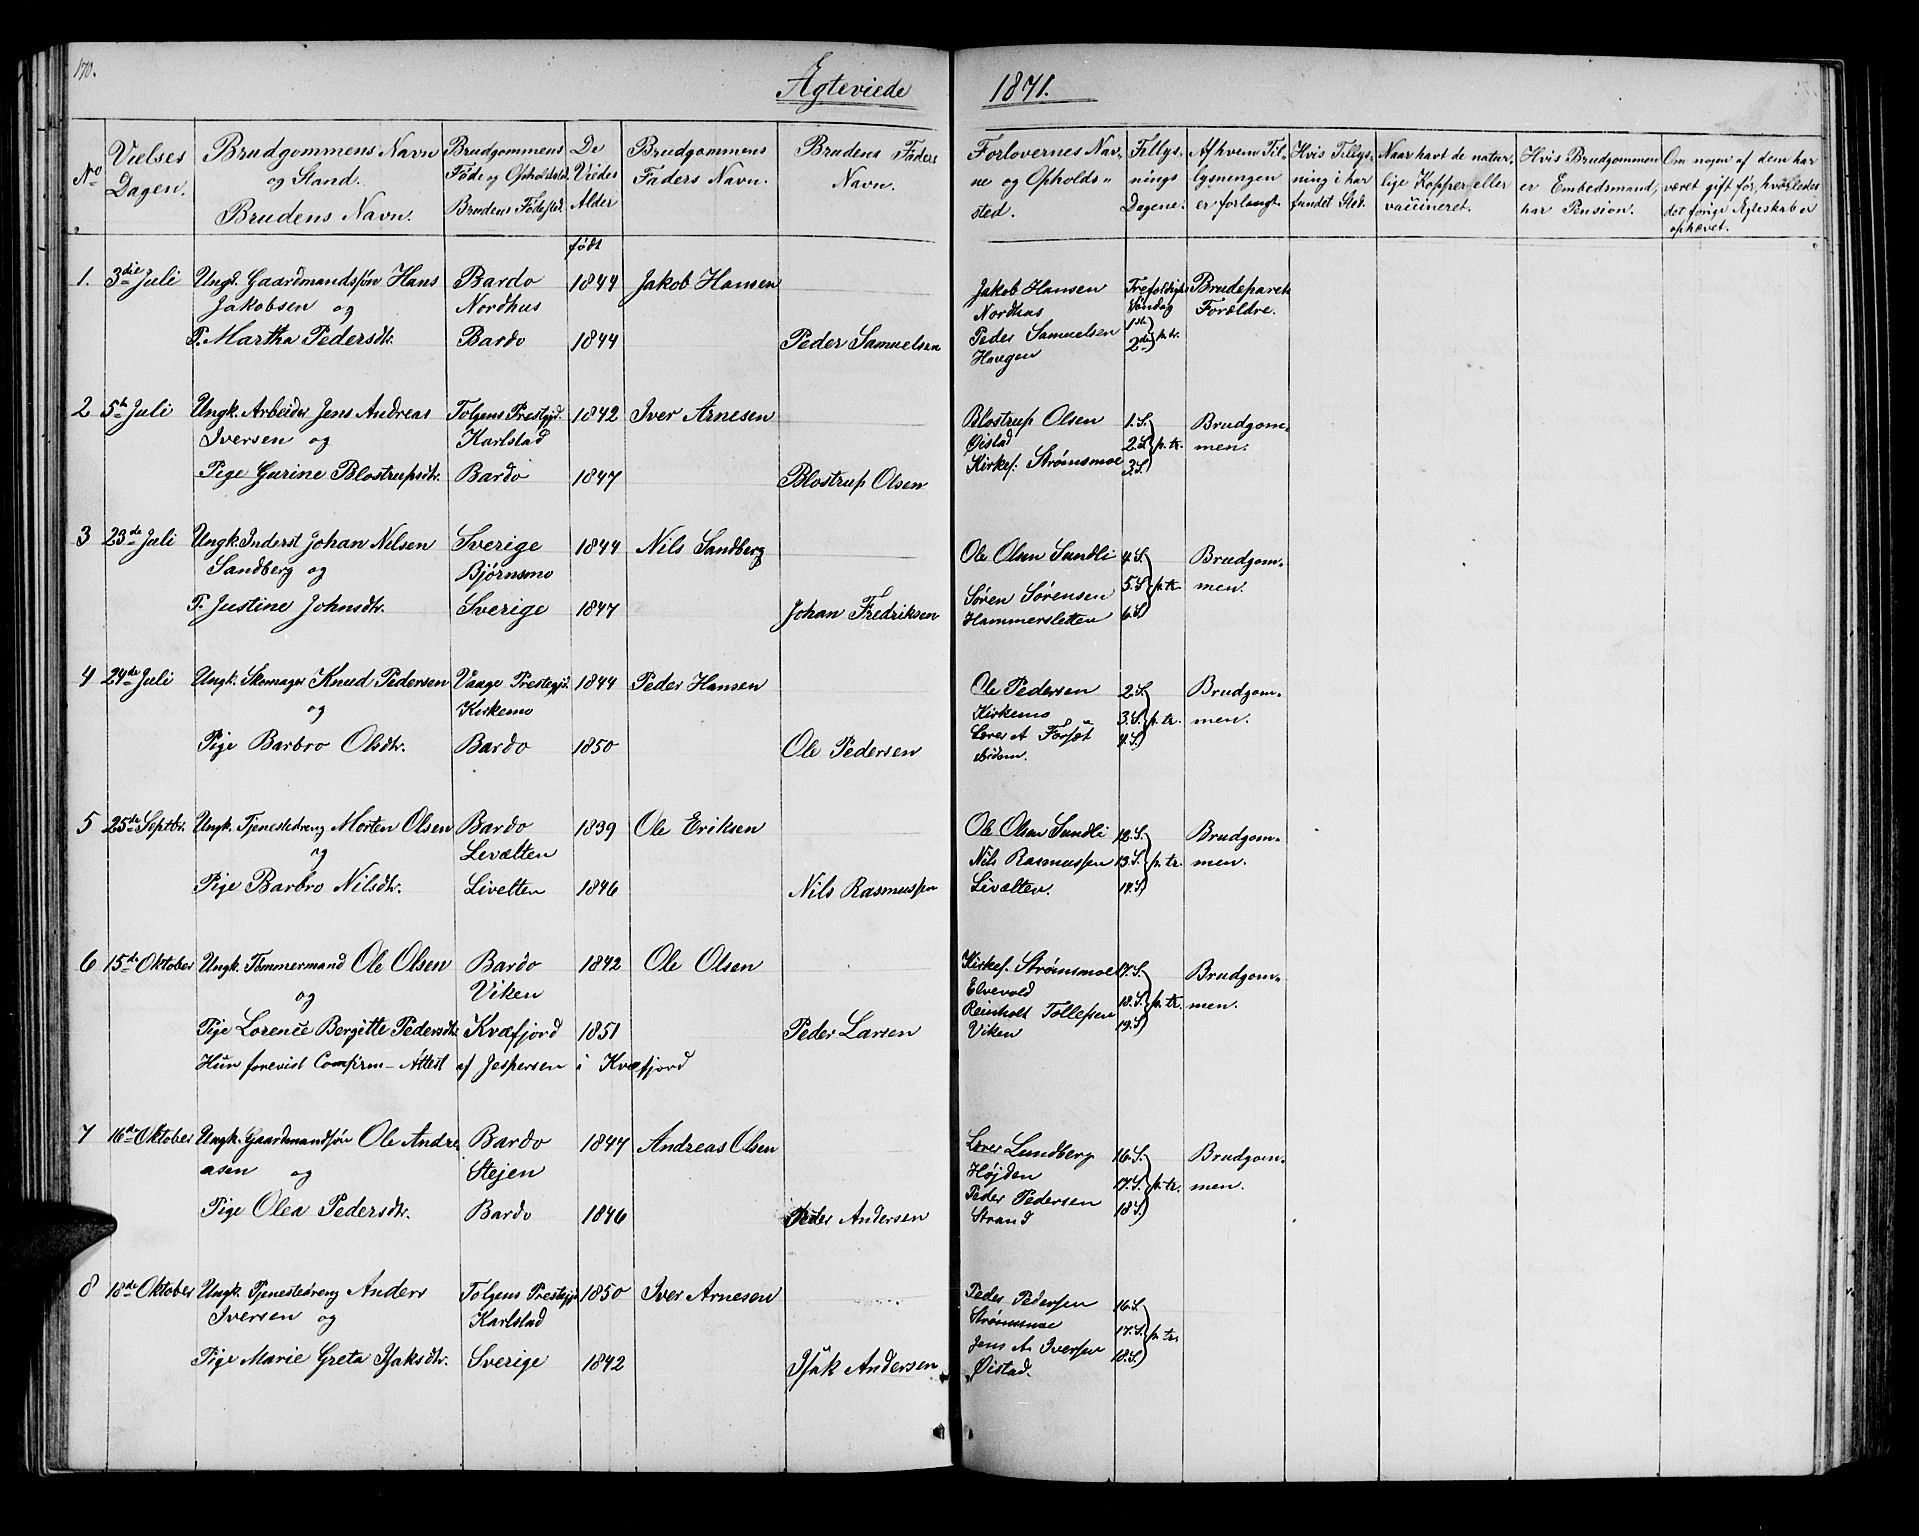 170.
Ægteviede 1871.
No
Vielses Dagen.
Brudgommens Navn og Stand. Brudens Navn.
Brudgommens Føde og Opholdsted. Brudens Fødested.
De Viedes Alder
født
Brudgommens Faders Navn.
Brudens Faders Navn.
Forlovernes Navne og Opholdssted.
Tillysnings Dagene.
Af hvem Tillysningen er forlangt.
Hvis Tillysning i har fundet Sted.
Naar havt de naturlige Kopper eller vaccineret.
Hvis Brudgommen er Embedsmand, har Pension.
Om nogen af dem har været gift før, hvorledes det forige Egteskab er ophævet.
1. 3die Juli Ungk. Gaardmandssøn Hans Bardo 1844 Jakob Hansen Jakob Hansen Trefoldigh. Brudeparets
Jakobsen og Nordhus Nordhus Søndag Forældre.
P. Martha Pedersdtr. Bardo 1844 Peder Samuelsen Peder Samuelsen 1ste
Haugen 2de p. tr.
2 5te Juli Ungk. Arbeider Jens Andreas Tolgens Prestegjd. 1842 Iver Arnesen Blostrup Olsen 1. S. Brudgom-
Iversen og Karlstad Øistad 2. S. p. tr. men.
Pige Gurine Blostrupsdtr. Bardo 1847 Blostrup Olsen Kirkes. Strømsmoe 3. S.
3 23de Juli Ungk. Inderst Johan Nilsen Sverige 1844 Nils Sandberg Ole Olsen Sundli 4. S. Brudgom-
Sandberg og Bjørnsmo 5. S. p. tr. men.
P. Justine Johnsdtr. Sverige 1847 Johan Fredriksen Søren Sørensen
Hammersletten 6. S.
4 24de Juli Ungk. Skomager Knud Pedersen Vaage Prestegjd. 1844 Peder Hansen Ole Pedersen 2. S. Brudgom-
og Kirkemo Kirkemo 3. S. p. tr. men.
Pige Barbro Olsdtr. Bardo 1850 Ole Pedersen Lars A Forset 4. S.
ibidem.
5 25de Septbr. Ungk. Tjenestedreng Morten Olsen Bardo 1839 Ole Eriksen Ole Olsen Sundli 12. S. Brudgom-
og Levælten Nils Rasmussen 13. S. p. tr. men.
Pige Barbro Nilsdtr. Livelten 1846 Nils Rasmussen Livælten. 14. S.
6 15de Oktober Ungk. Tømmermand Ole Olsen Bardo 1842 Ole Olsen Kirkes. Strømsmoe 17. S. Brudgom-
og Viken Elvevold 18. S. p. tr. men.
Pige Lorence Bergitte Pedersdtr. Kvæfjord 1851 Peder Larsen Reinholt Tollefsen 19. S.
Viken
Hun forevist Confirm-Attest af Jespersen i Kvæfjord
7 16de Oktober Ungk. Gaardmandssøn Ole Andre- Bardo 1847 Andreas Olsen Lars Lundberg 16. S. Brudgom-
asen og Stejen Højden 17. S. p. tr. men.
Pige Olea Pedersdtr. Bardo 1846 Peder Andersen Peder Pedersen 18. S.
Strand
8 18de Oktober Ungk. Tjenestedreng Anders Tolgens Prestegjd. 1850 Iver Arnesen Peder Pedersen 16. S.
Iversen og Karlstad Strømsmoe 17. S. p. tr.
Pige Marie Greta Isaksdtr. Sverige 1842 Isak Andersen Jens A. Iversen 18. S.
Øistad.